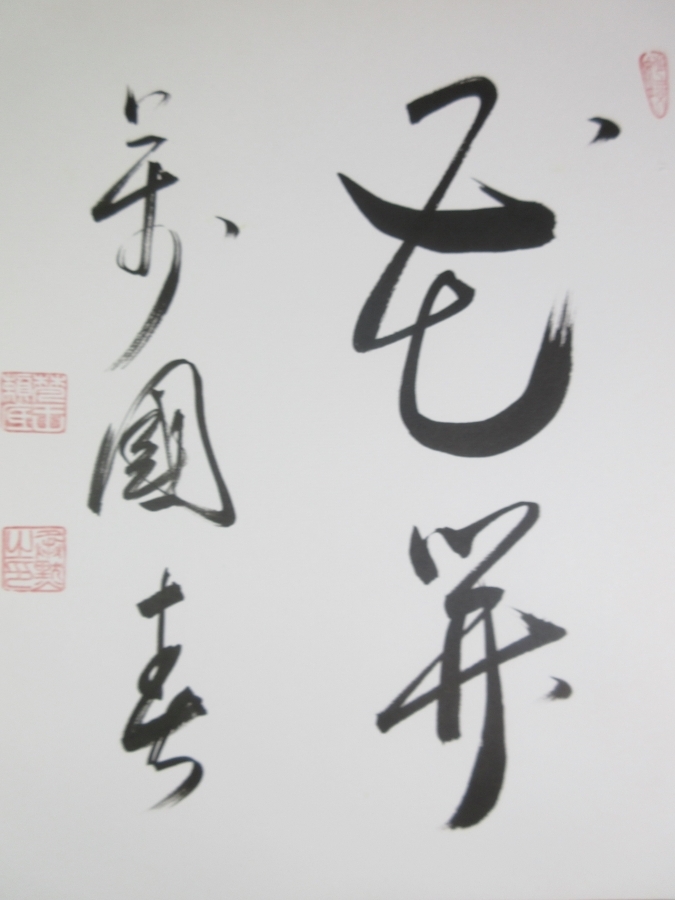 花開
萬國春